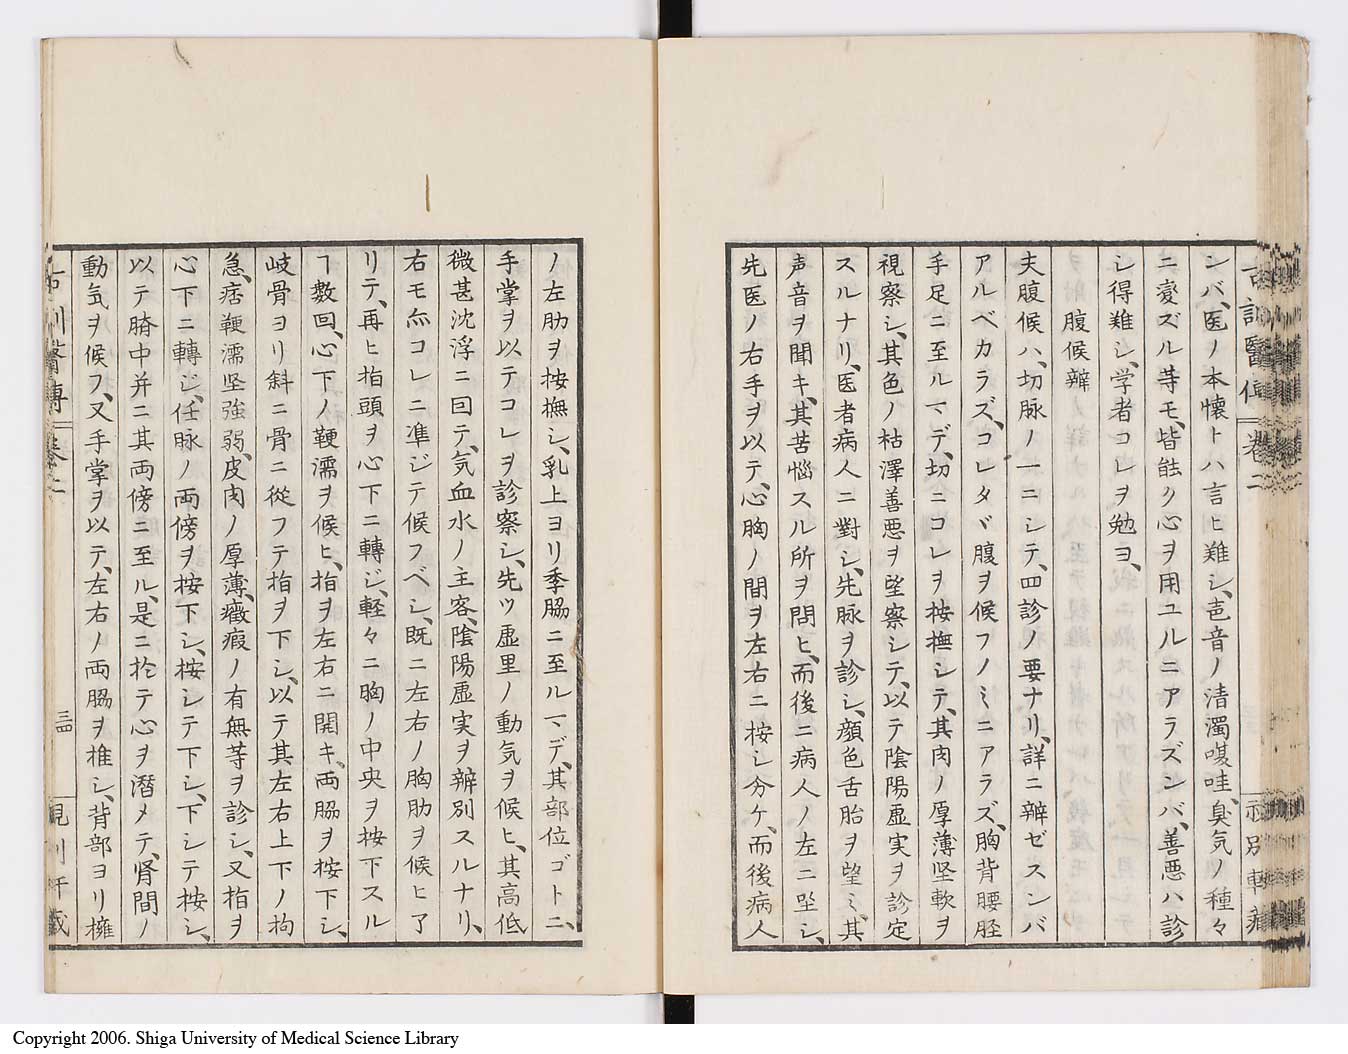 ンバ、医ノ本懐トハ言ヒ難シ、音ノ清濁嗄哇、臭気ノ種々
ニ変ズル等モ、皆能ク心ヲ用ユルニアラズンバ、善悪ハ診
シ得難シ、学者コレヲ勉ヨ、
腹候辨
夫腹候ハ、切脉ノ一ニシテ、四診ノ要ナリ、詳ニ辨ゼスンバ
アルベカラズ、コレタヾ腹ヲ候フノミニアラズ、胸背腰脛
手足ニ至ルマデ、切ニコレヲ按撫シテ、其肉ノ厚薄坚軟ヲ
視察シ、其色ノ枯澤善悪ヲ望察シテ、以テ陰陽虚実ヲ診定
スルナリ、医者病人ニ對シ、先脉ヲ診シ、顔色舌胎ヲ望ミ、其
声音ヲ聞キ、其苦悩スル所ヲ問ヒ、而後ニ病人ノ左ニ坐シ、
先医ノ右手ヲ以テ、心胸ノ間ヲ左右ニ按シ分ケ、而後病人
ノ左肋ヲ按撫シ、乳上ヨリ季脇ニ至ルマデ、其部位ゴトニ、
手掌ヲ以テコレヲ診察シ、先ツ虚里ノ動気ヲ候ヒ、其高低
微甚沈浮ニ因テ、気血水ノ主客、陰陽虚実ヲ辨別スルナリ、
右モ亦コレニ準ジテ候フベシ、既ニ左右ノ胸肋ヲ候ヒ了
リテ、再ヒ指頭ヲ心下ニ轉ジ、軽々ニ胸ノ中央ヲ按下スル
ヿ数回、心下ノ鞕濡ヲ候ヒ、指ヲ左右ニ開キ、両脇ヲ按下シ、
岐骨ヨリ斜ニ骨ニ從フテ指ヲ下シ、以テ其左右上下ノ拘
急、痞鞕濡坚強弱、皮肉ノ厚薄、癥瘕ノ有無等ヲ診シ、又指ヲ
心下ニ轉ジ、任脉ノ両傍ヲ按下シ、按シテ下シ、下シテ按シ、
以テ臍中并ニ其両傍ニ至ル、是ニ於テ心ヲ潜メテ、腎間ノ
動気ヲ候フ、又手掌ヲ以テ、左右ノ両脇ヲ推シ、背部ヨリ擁
三四
Copyright 2006. Shiga University of Medical Science Library